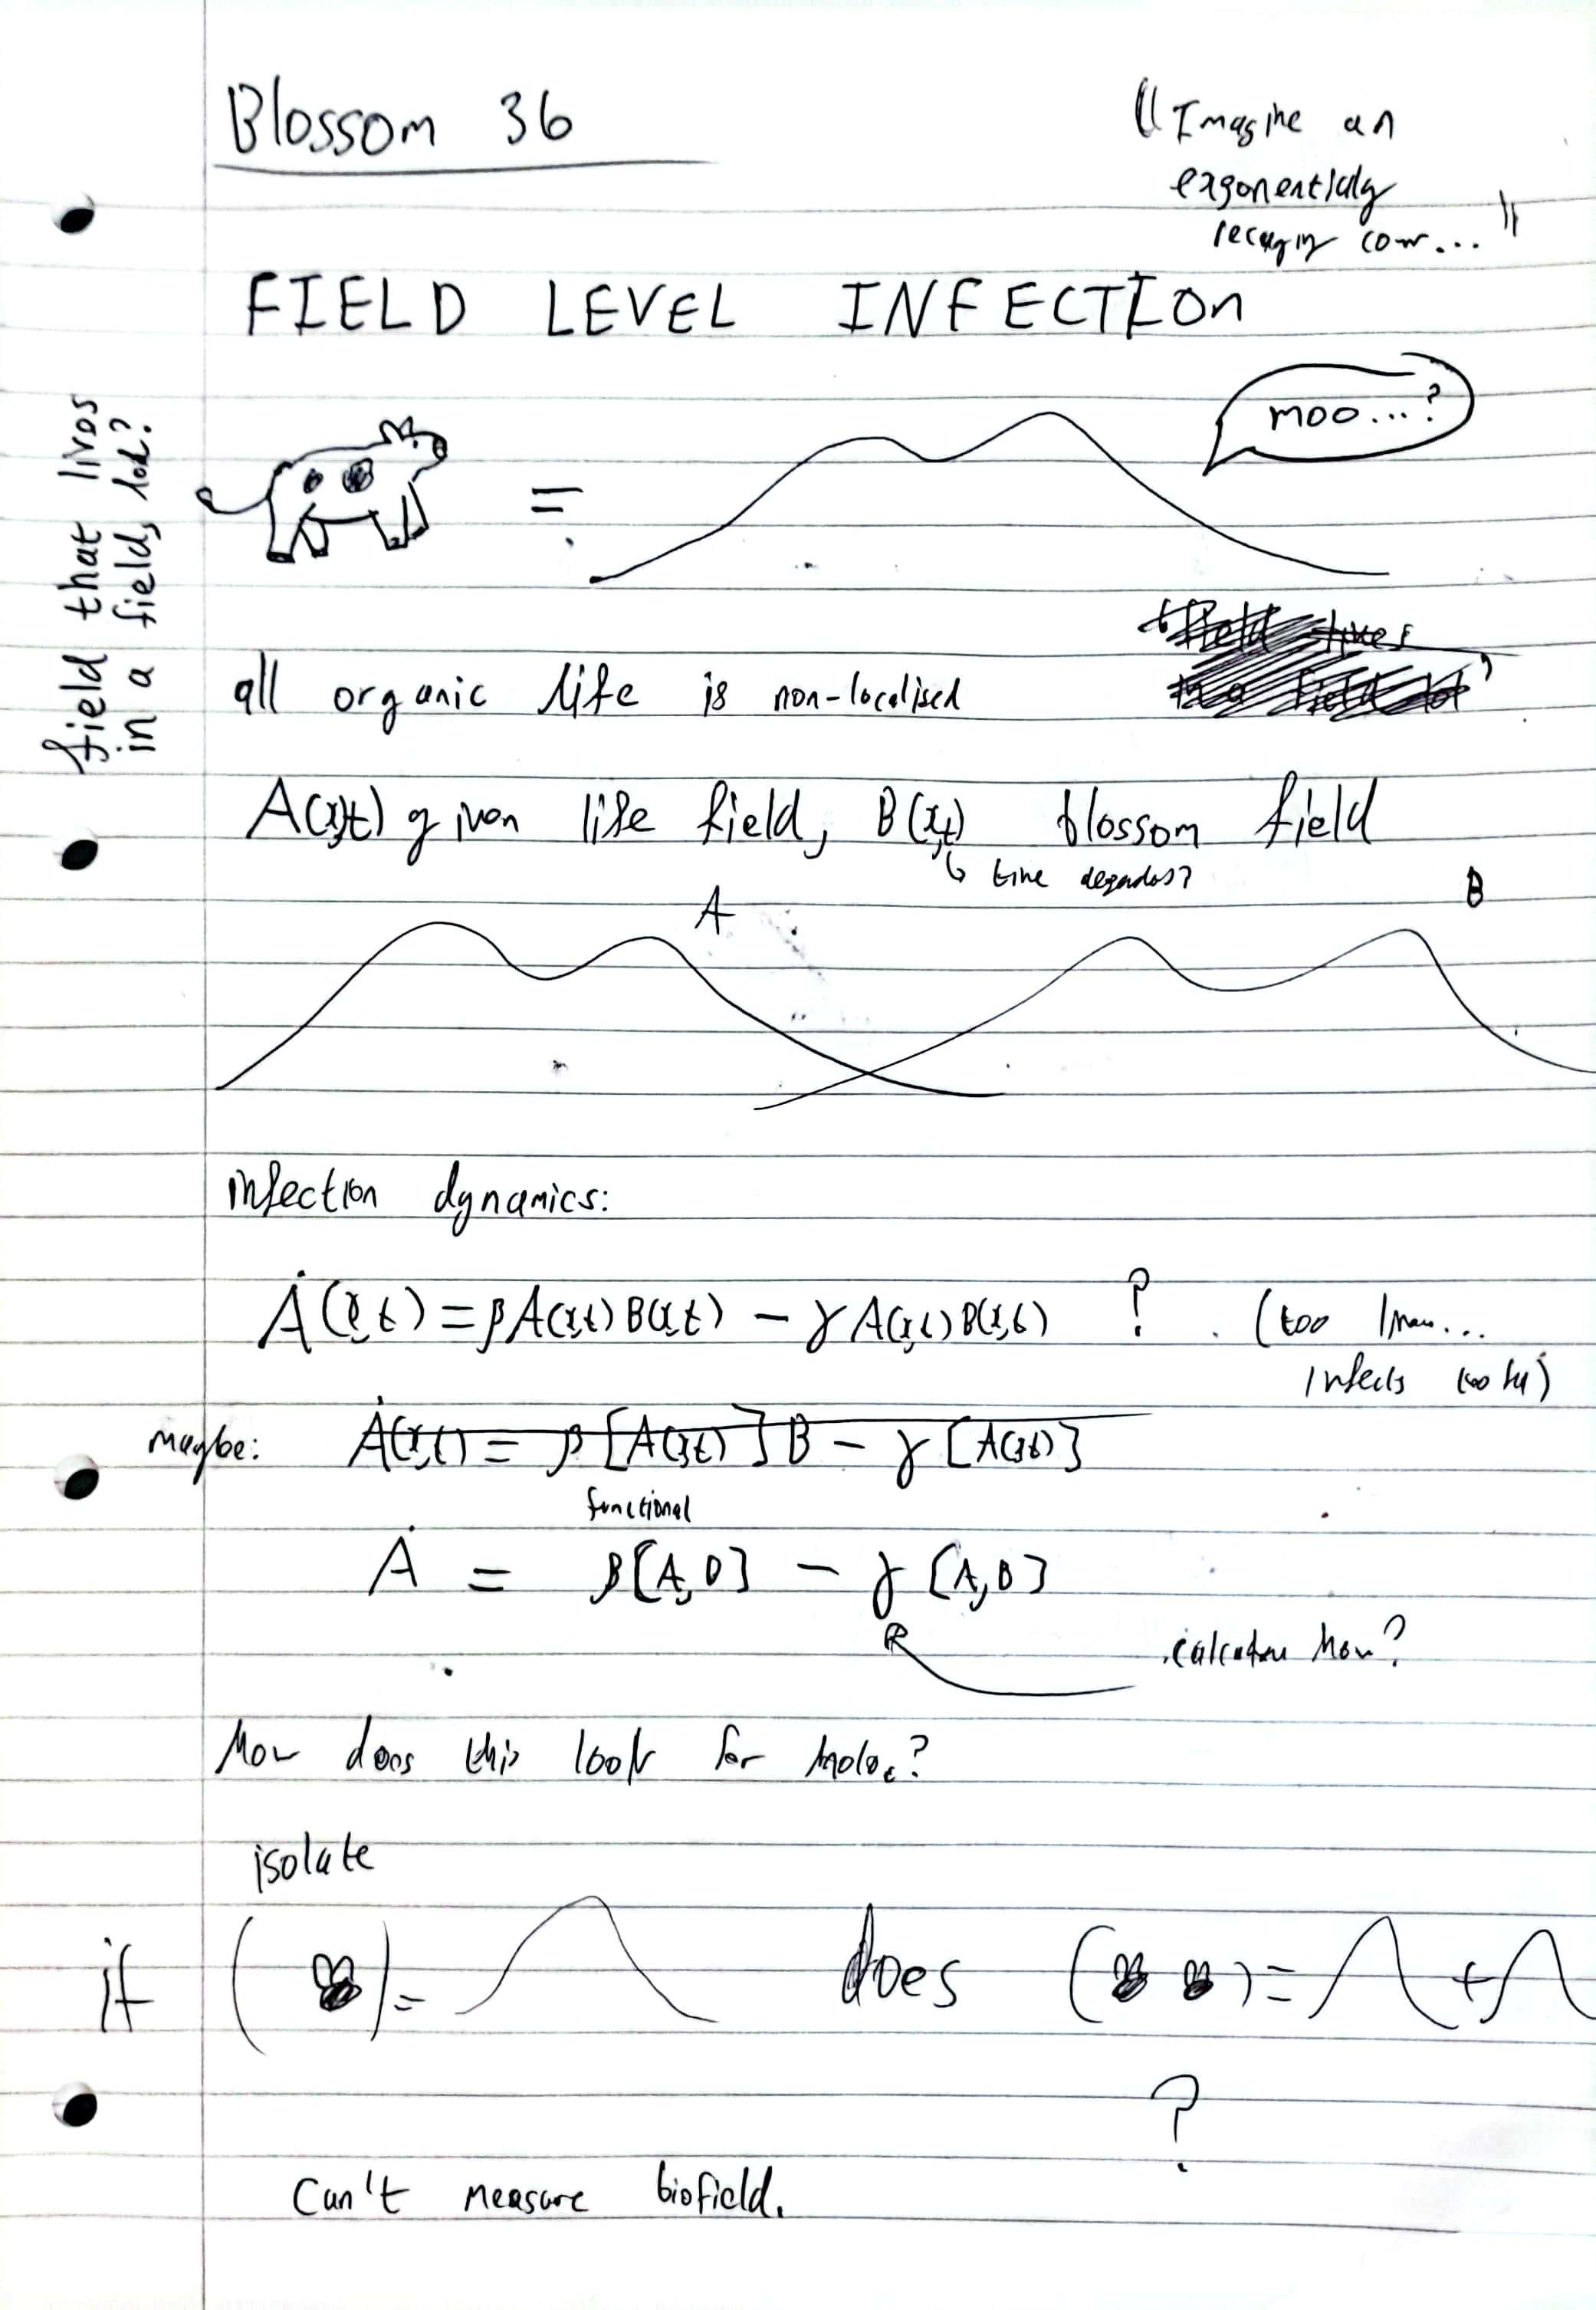 Blossom 36
"Imagine an
exponentially
decaying cow..."
FIELD LEVEL INFECTION
field that lives
in a field, lol?
moo...?
=
all organic life is non-localised
A(x,t) given life field, B(x,t) blossom field
↳ time dependos?
A
B
infection dynamics:
Ȧ(x,t) = βA(x,t)B(x,t) − γA(x,t)B(x,t) ? (too
infects
maybe: Ȧ(x,t) = β[A(x,t)]B − γ[A(x,t)]
functional
Ȧ = β[A,B] − γ[A,B]
calculate how?
How does this look for
isolate
if ( ) = does ( ) = +
?
Can't measure biofield.